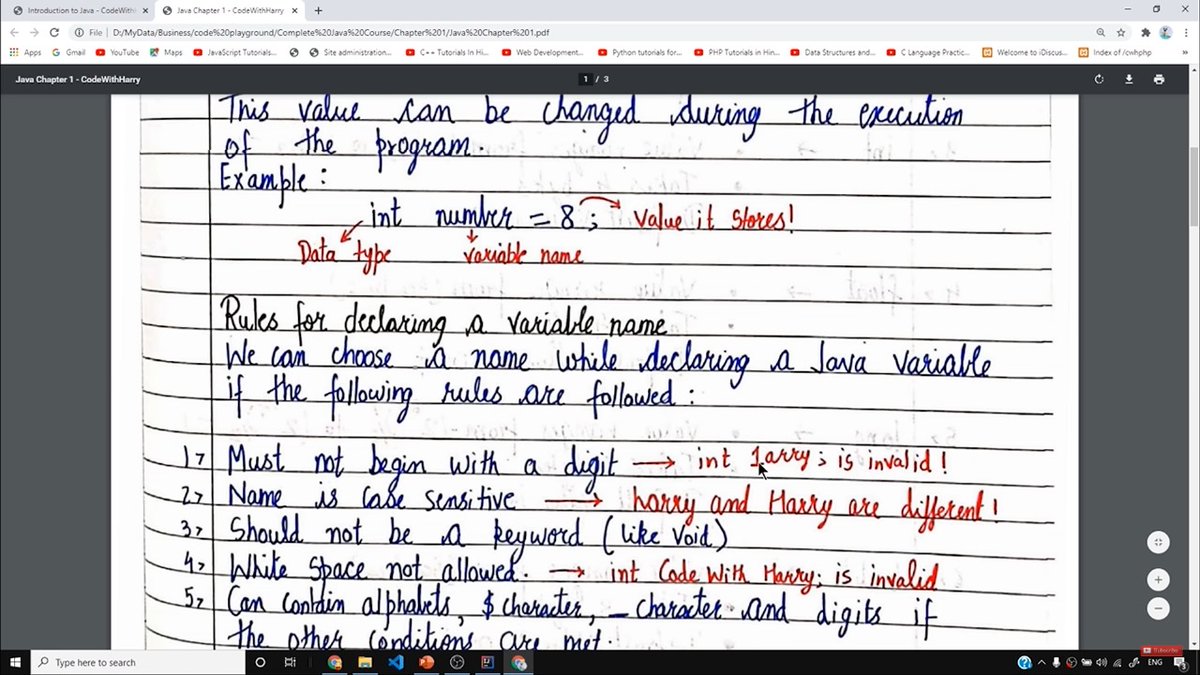 Introduction to Java - CodeWithH
Java Chapter 1 - CodeWithHarry
File
D:/MyData/Business/code%20playground/Complete%20Java%20Course/Chapter%201/Java%20Chapter%201.pdf
Apps
Gmail
YouTube
Maps
JavaScript Tutorials...
Site administration...
C++ Tutorials In Hi...
Web Development...
Python tutorials for...
PHP Tutorials in Hin...
Data Structures and...
C Language Practic...
Welcome to iDiscus...
Index of /cwhphp
Java Chapter 1 - CodeWithHarry
1 / 3
This value can be changed during the execution
of the program.
Example :
int number = 8 ; value it stores!
Data type variable name
Rules for declaring a variable name
We can choose a name while declaring a Java variable
if the following rules are followed :
1> Must not begin with a digit → int 1arry; is invalid !
2> Name is case sensitive → harry and Harry are different !
3> Should not be a keyword (like Void)
4> White space not allowed. → int Code With Harry; is invalid
5> Can contain alphabets, $ character, _ character and digits if
the other conditions are met.
Type here to search
ENG
Subscribe